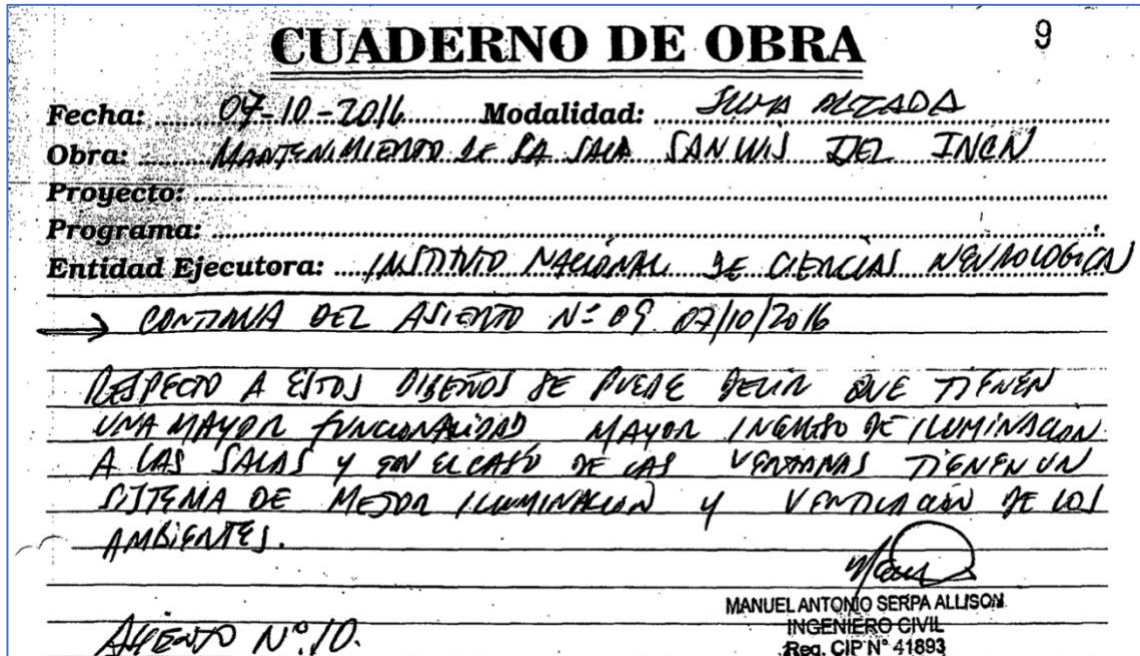 CUADERNO DE OBRA 9
Fecha: 07-10-2016 Modalidad: SUMA ALZADA
Obra: MANTENIMIENTO DE LA SALA SAN LUIS DEL INCN
Proyecto:
Programa:
Entidad Ejecutora: INSTITUTO NACIONAL DE CIENCIAS NEUROLOGICA
→ CONTINUA DEL ASIENTO Nº 09 07/10/2016
RESPECTO A ESTOS DISEÑOS SE PUEDE DECIR QUE TIENEN
UNA MAYOR FUNCIONALIDAD MAYOR INGRESO DE ILUMINACION
A LAS SALAS Y EN EL CASO DE LAS VENTANAS TIENEN UN
SISTEMA DE MEJOR ILUMINACION Y VENTILACION DE LOS
AMBIENTES.
MANUEL ANTONIO SERPA ALLISON
INGENIERO CIVIL
Reg. CIP N° 41893
ASIENTO Nº 10.